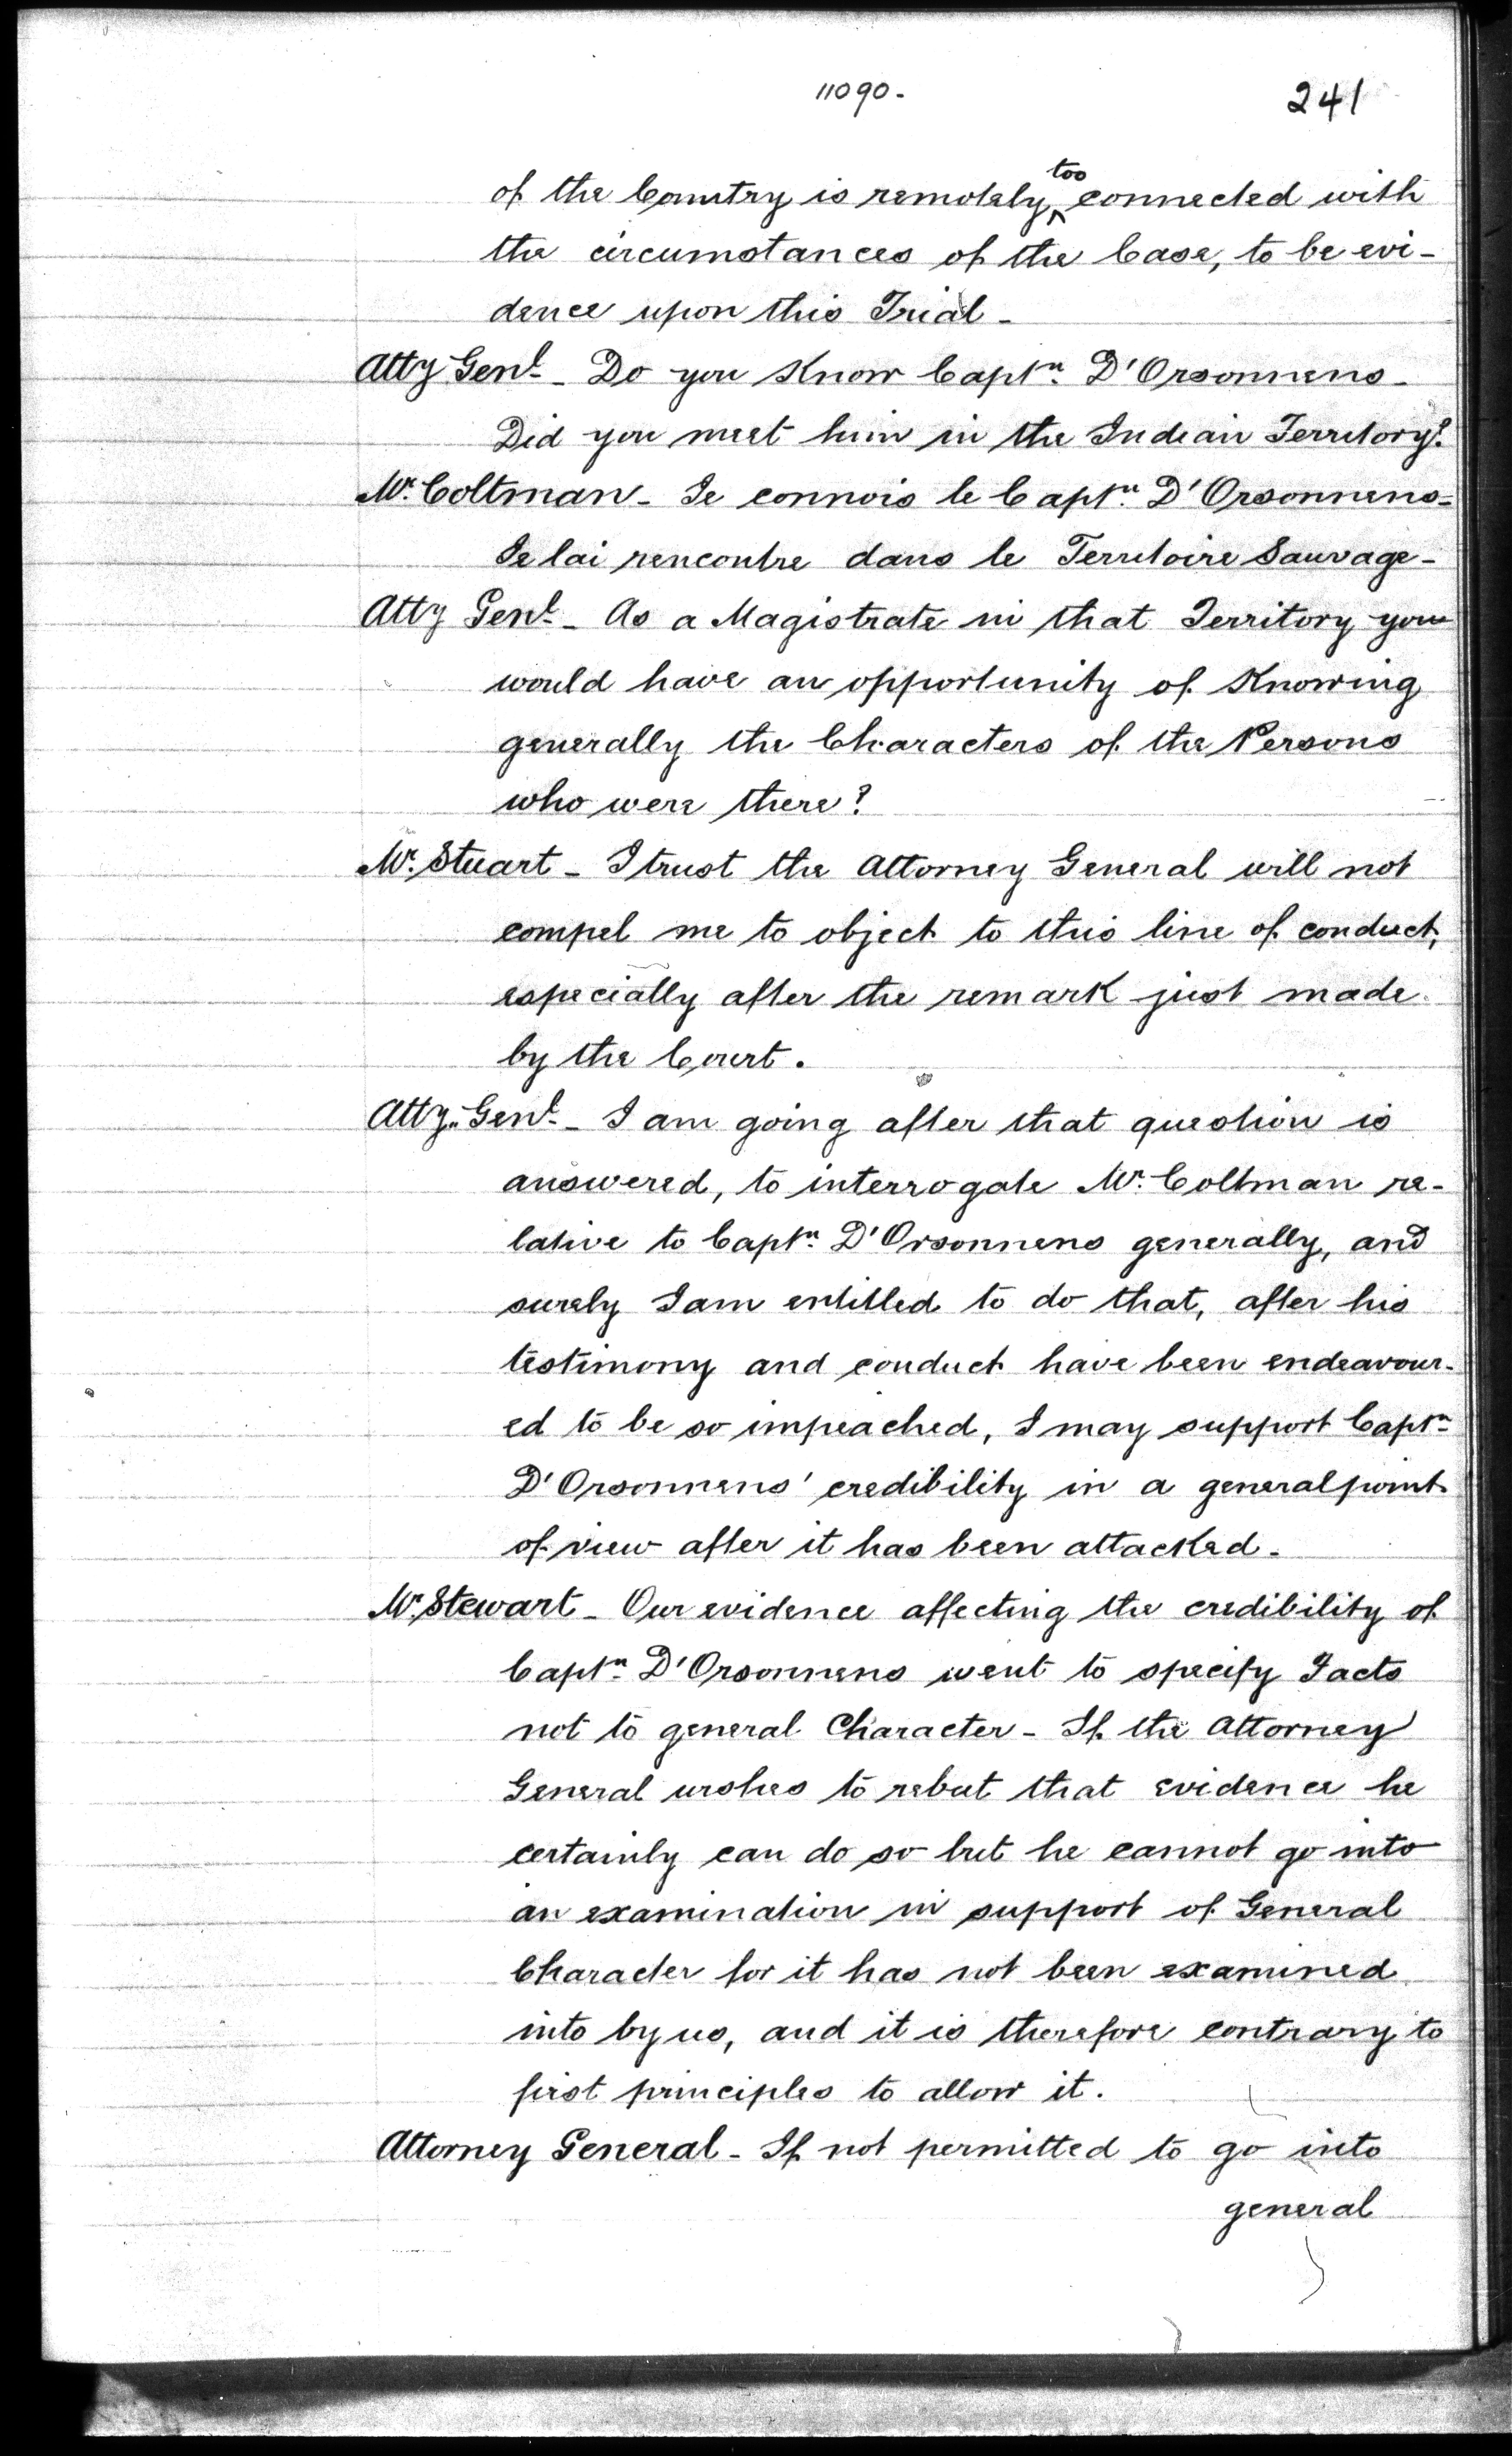 11090.
241
of the Country is remotely too connected with
the circumstances of the Case, to be evi-
dence upon this Trial -
Atty Genl - Do you Know Captn. D'Orsonnens -
Did you meet him in the Indian Territory?
Mr. Coltman - Je connois le Captn. D'Orsonnens -
Je lai rencontre dans le Territoire Sauvage -
Atty Genl - As a Magistrate in that Territory you
would have an opportunity of Knowing
generally the Characters of the Persons
who were there?
Mr. Stuart - I trust the Attorney General will not
compel me to object to this line of conduct,
especially after the remark just made
by the Court.
Atty. Genl - I am going after that question is
answered, to interrogate Mr. Coltman re-
lative to Captn. D'Orsonnens generally, and
surely I am entitled to do that, after his
testimony and conduct have been endeavour-
ed to be so impeached, I may support Captn
D'Orsonnens' credibility in a general point
of view after it has been attacked.
Mr. Stewart - Our evidence affecting the credibility of
Captn. D'Orsonnens went to specify Facts
not to general Character - If the Attorney
General wishes to rebut that evidence he
certainly can do so but he cannot go into
an examination in support of General
Character for it has not been examined
into by us, and it is therefore contrary to
first principles to allow it.
Attorney General - If not permitted to go into
general